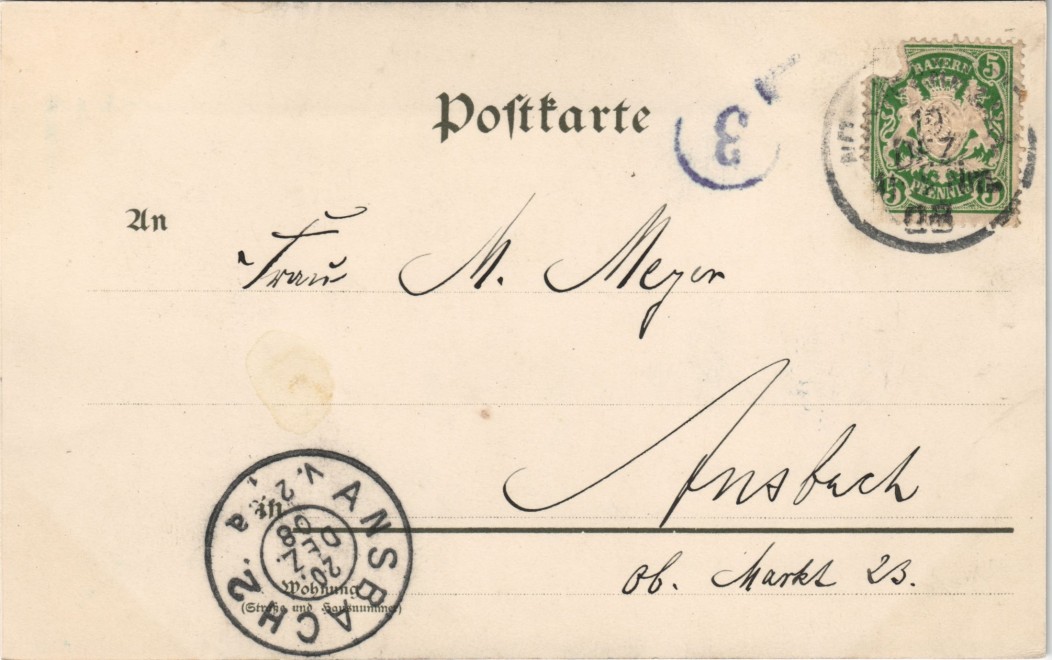 Postkarte
3
BAYERN 5
PFENNIG
5
19
DEZ
08
An
Frau M. Meyer
Ansbach
ob. Markt 23.
ANSBACH 2.a.
20.
DEZ.
08
Wohnung
(Straße und Hausnummer)